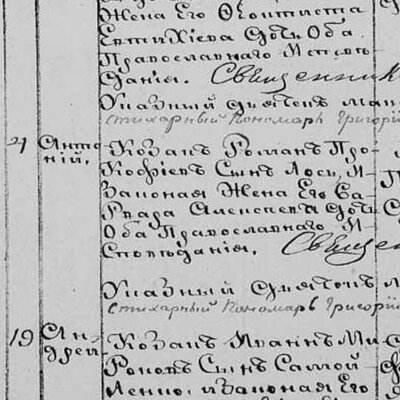 Жена Его Ѳеоктиста
Евтихіева Дочь Оба
Православнаго Испов-
Данія. Священник
Указный дьяконъ
стихарный Пономарь Григорій
Анто-
ній. Козакъ Романъ Про-
кофіевъ Сынъ Лось, И
Законная Жена Его Ва-
рвара Алексеева Дочь
Оба Православнаго И-
споведанія. Священ
Указный дьяконъ
стихарный Пономарь Григорій
19 Ан-
дрей. Козакъ Иванъ Ми-
роновъ Сынъ Самой-
ленко, и Законная Его